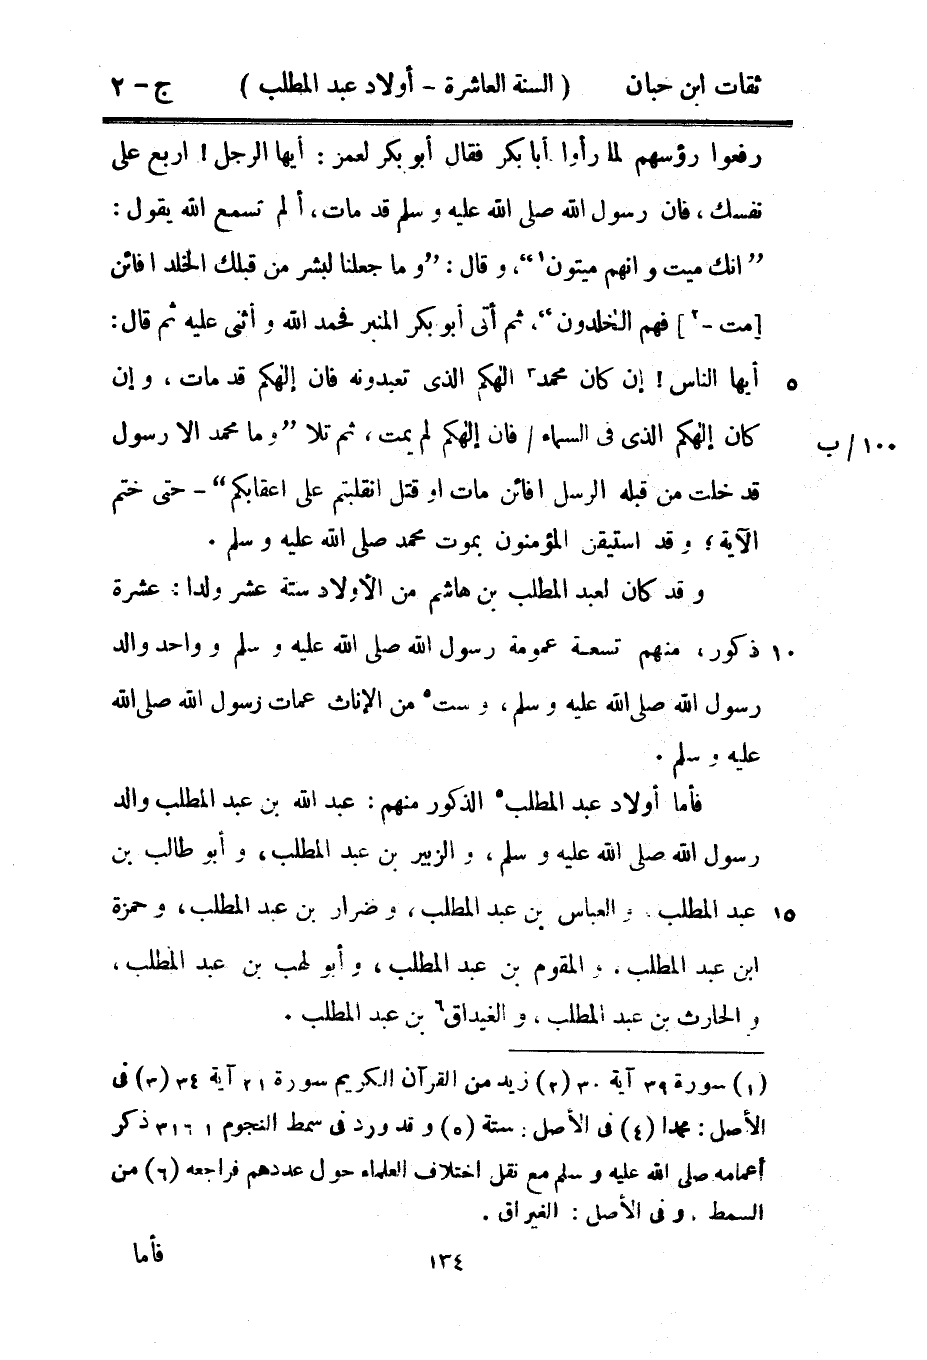 ثقات ابن حبان ( السنة العاشرة - أولاد عبد المطلب ) ج - ٢
رفعوا رؤسهم لما رأوا أبا بكر فقال أبو بكر لعمر : أيها الرجل ! اربع على
نفسك ، فان رسول الله صلى الله عليه و سلم قد مات ، ألم تسمع الله يقول :
” انك ميت و انهم ميتون١“، و قال : ”و ما جعلنا لبشر من قبلك الخلد افائن
[مت -٢] فهم الخلدون“، ثم أتى أبو بكر المنبر فحمد الله و أثنى عليه ثم قال :
أيها الناس ! إن كان محمد٣ الهكم الذى تعبدونه فان إلهكم قد مات ، و إن ٥
كان إلهكم الذى فى السماء / فان إلهكم لم يمت ، ثم تلا ”و ما محمد الا رسول ١٠٠/ ب
قد خلت من قبله الرسل افائن مات او قتل انقلبتم على اعقابكم“ - حتى ختم
الآية ؛ و قد استيقن المؤمنون بموت محمد صلى الله عليه و سلم .
و قد كان لعبد المطلب بن هاشم من الأولاد ستة عشر ولدا : عشرة
ذكور ، منهم تسعة عمومة رسول الله صلى الله عليه و سلم و واحد والد ١٠
رسول الله صلى الله عليه و سلم ، و ست٤ من الإناث عمات رسول الله صلى الله
عليه و سلم .
فأما أولاد عبد المطلب٥ الذكور منهم : عبد الله بن عبد المطلب والد
رسول الله صلى الله عليه و سلم ، و الزبير بن عبد المطلب ، و أبو طالب بن
عبد المطلب ، و العباس بن عبد المطلب ، و ضرار بن عبد المطلب ، و حمزة ١٥
ابن عبد المطلب ، و المقوم بن عبد المطلب ، و أبو لهب بن عبد المطلب ،
و الحارث بن عبد المطلب ، و الغيداق٦ بن عبد المطلب .
(١) سورة ٣٩ آية ٣٠ (٢) زيد من القرآن الكريم سورة ٢١ آية ٣٤ (٣) فى
الأصل : محمدا (٤) فى الأصل : ستة (٥) و قد ورد فى سمط النجوم ١/ ٣١٦ ذكر
أعمامه صلى الله عليه و سلم مع نقل اختلاف العلماء حول عددهم فراجعه (٦) من
السمط ، و فى الأصل : الغيراق .
١٣٤ فأما